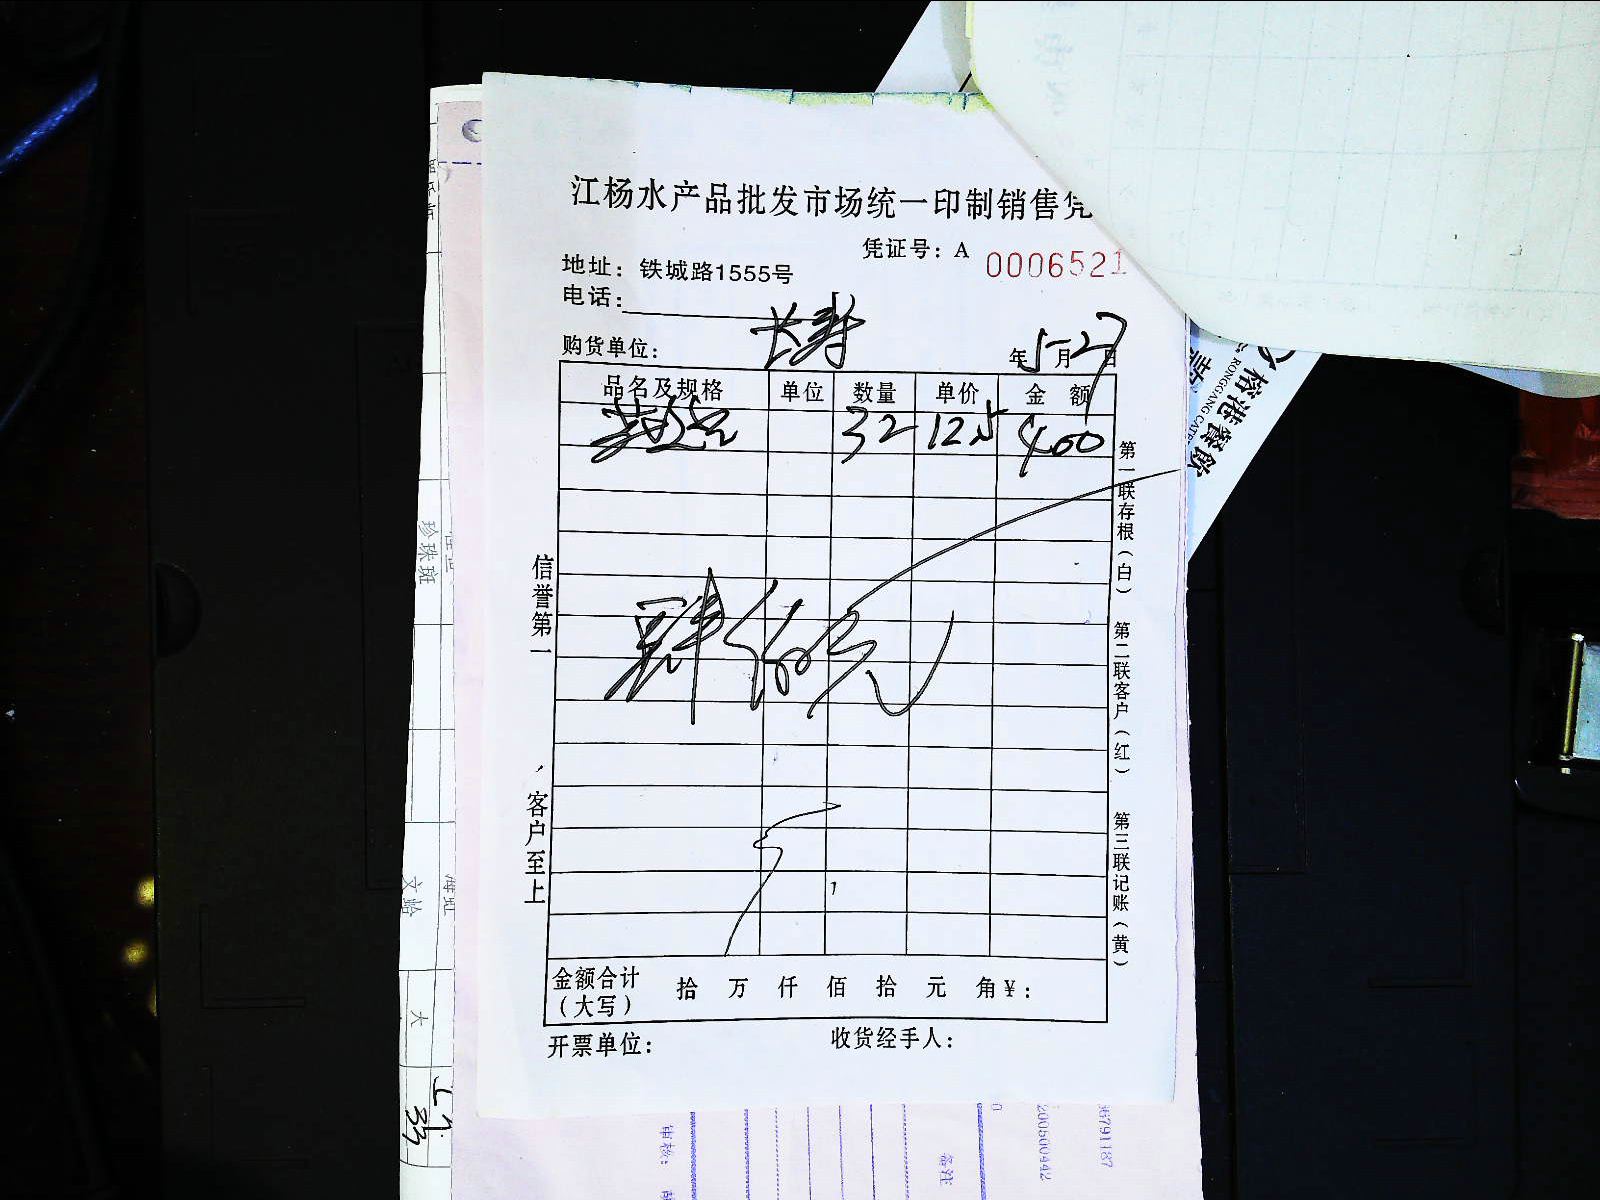 江杨水产品批发市场统一印制销售凭
凭证号：A 0006521
地址：铁城路1555号
电话：
购货单位：大寿
年5月27日
品名及规格 单位 数量 单价 金额
32 12.5 400
肆佰元
信誉第一，客户至上
第一联存根（白） 第二联客户（红） 第三联记账（黄）
金额合计（大写） 拾 万 仟 佰 拾 元 角￥：
开票单位： 收货经手人：
珍珠斑
文蛤
大
33
裕港餐饮
RONGGANG CATE
审核：
备注
200500442
36791187